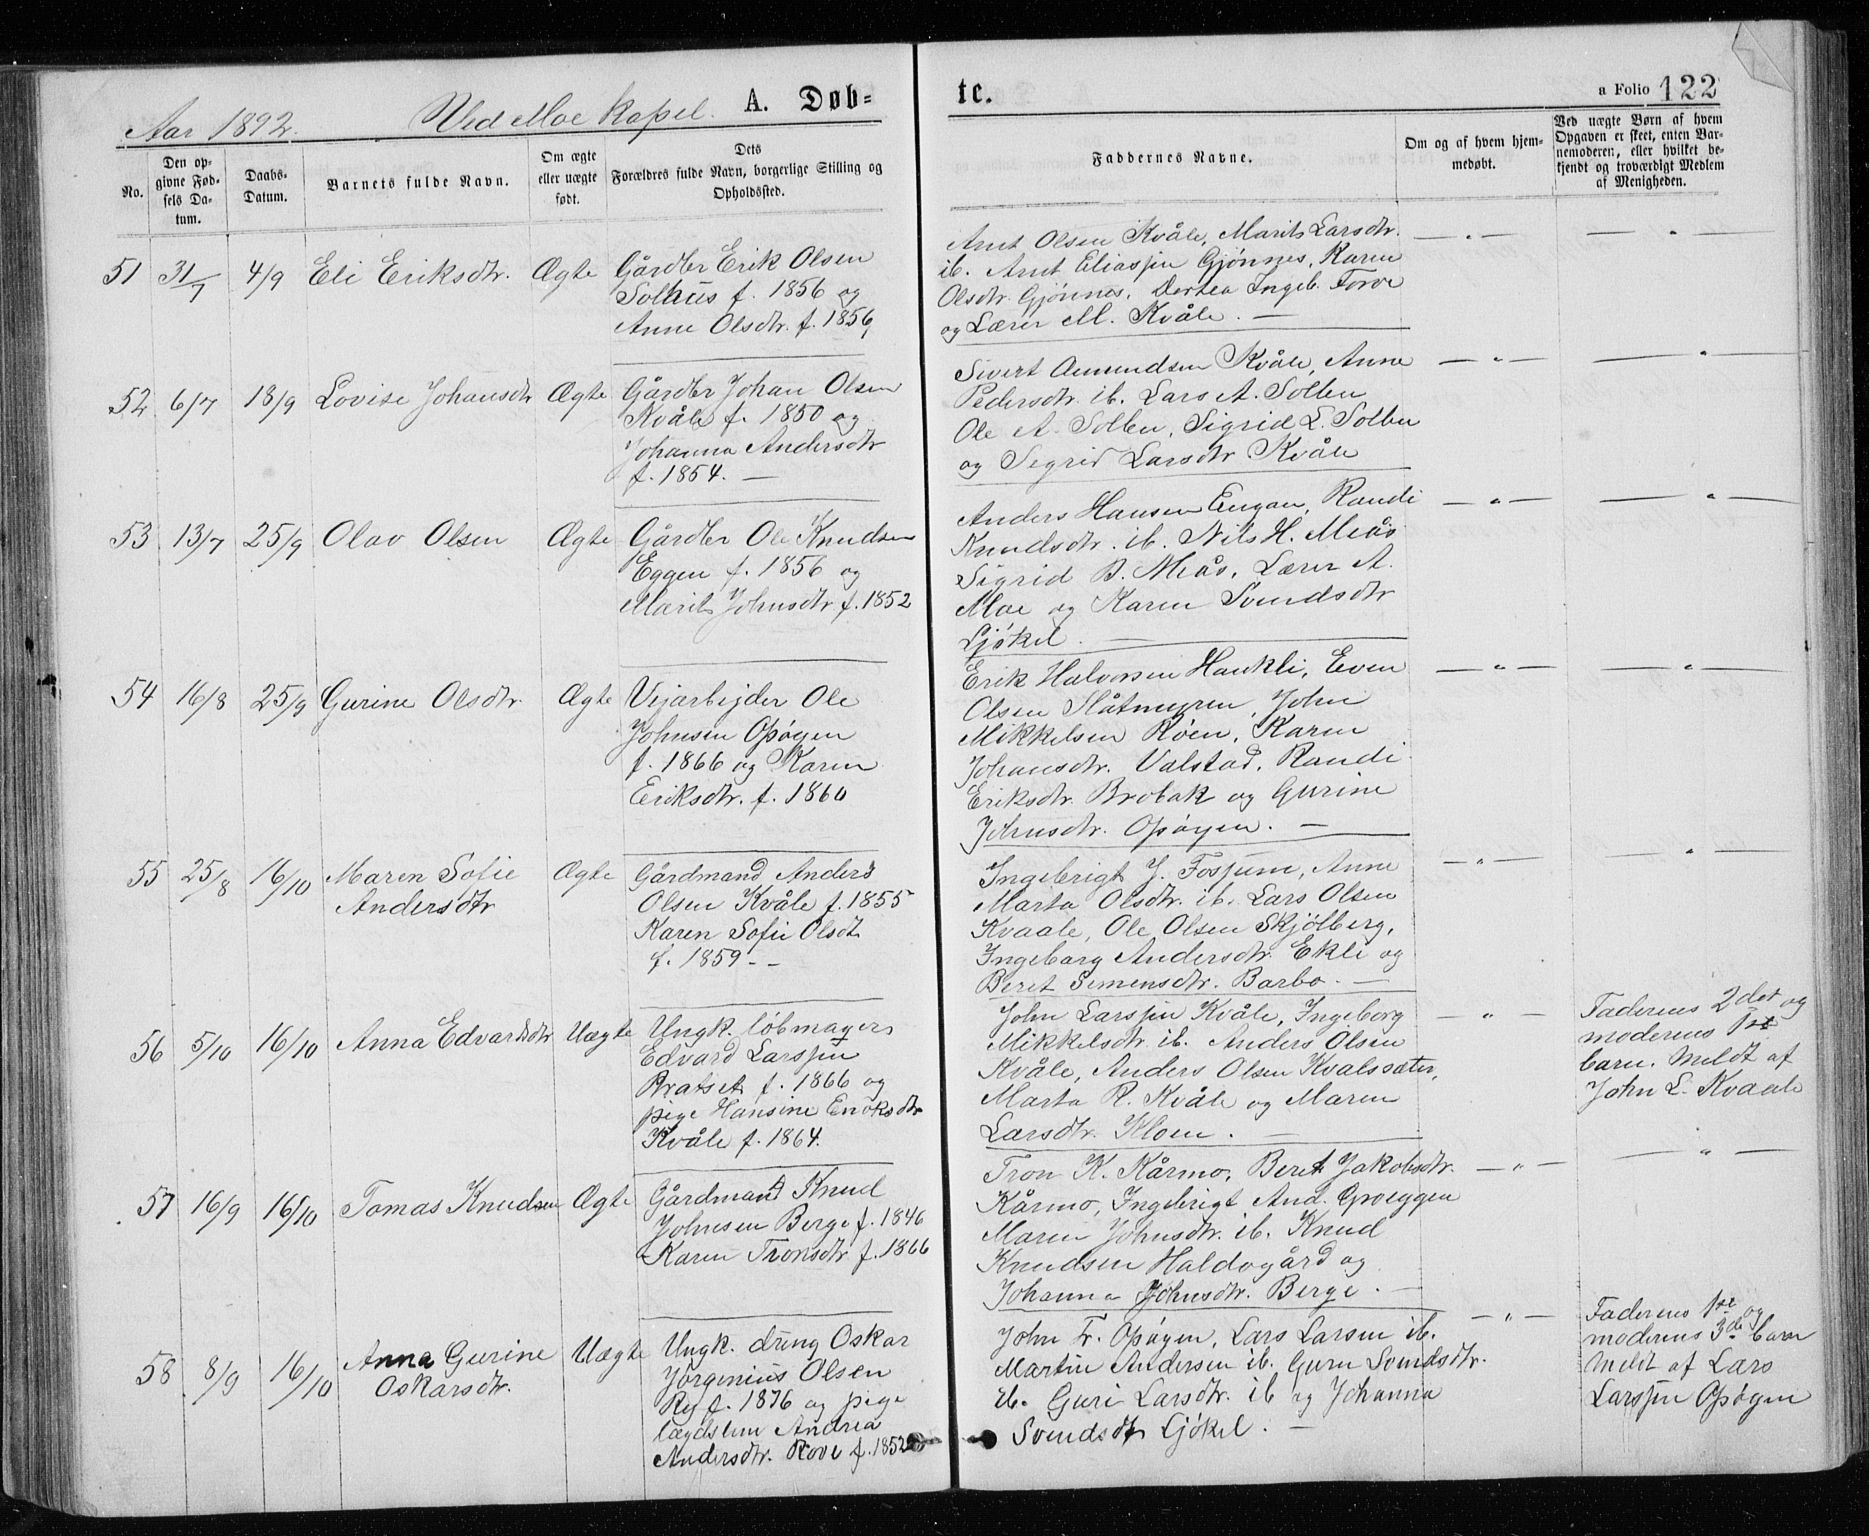 Aar 1892. Ved Moe kapel. A. Døb-
te.
a Folio 122
No.
Den op-
givne Fød-
sels Da-
tum.
Daabs-
Datum.
Barnets fulde Navn.
Om ægte
eller uægte
født.
Dets
Forældres fulde Navn, borgerlige Stilling og
Opholdssted.
Faddernes Navne.
Om og af hvem hjem-
medøbt.
Ved uægte Børn af hvem
Opgaven er skeet, enten Bar-
nemoderen, eller hvilket be-
kjendt og troværdigt Medlem
af Menigheden.
51 31/7 4/9 Eli Eriksdtr. Ægte
Gårdbr Erik Olsen
Solhus f. 1856 og
Anne Olsdtr. f. 1856
Arnt Olsen Kvåle, Marit Larsdtr.
ib. Arnt Eliassen Gjønnes, Karen
Olsdtr. Gjønnes, Dortea Ingeb. Forve
og Lærer M. Kvåle. —
— „ —
— „
52 6/7 18/9 Lovise Johansdtr Ægte
Gårdbr Johan Olsen
Kvåle f. 1850 og
Johanna Andersdtr
f. 1854. —
Sivert Amundsen Kvåle, Anne
Pedersdtr. ib. Lars A. Solben
Ole A. Solben, Sigrid L. Solben
og Sigrid Larsdtr Kvåle
— „ —
— „
53 13/7 25/9 Olav Olsen Ægte
Gårdbr Ole Knudsen
Eggen f. 1856 og
Marit Johnsdtr f. 1852
Anders Hansen Engan, Randi
Knudsdtr. ib. Nils H. Meås
Sigrid B. Meås, Lærer A.
Moe og Karen Svendsdtr
Ljøkel. —
— „ —
— „ —
54 16/8 25/9 Gurine Olsdtr. Ægte
Vejarbejder Ole
Johnsen Opøyen
f. 1866 og Karen
Eriksdtr. f. 1860
Erik Halvorsen Haukli, Even
Olsen Slåtmyren, John
Mikkelsen Røen, Karen
Johansdtr. Valstad, Randi
Eriksdtr. Brobak og Gurine
Johnsdtr. Opøyen. —
— „ —
— „ —
55 25/8 16/10 Maren Sofie Ægte
Andersdtr
Gårdmand Anders
Olsen Kvåle f. 1855
Karen Sofie Olsdt
f. 1859 - -
Ingebrigt J. Fossum, Anne
Marta Olsdtr. ib. Lars Olsen
Kvaale, Ole Olsen Skjølberg,
Ingeborg Andersdtr. Ekli og
Beret Simensdtr. Barbo. —
— „ —
— „ —
56 5/10 16/10 Anna Edvardsdtr Uægte
Ungk. løbmager
Edvard Larssen
Bratset f. 1866 og
pige Hansine Enoksdtr
Kvåle f. 1864.
John Larssen Kvåle, Ingeborg
Mikkelsdtr. ib. Anders Olsen
Kvåle, Anders Olsen Kvalssæter,
Marta R. Kvåle og Maren
Larsdtr. Kloen. —
— „ —
Faderens 2det og
moderens 1ste
barn. Meldt af
John L. Kvaale
57 16/9 16/10 Tomas Knudsen Ægte
Gårdmand Knud
Johnsen Berge f. 1846
Karen Tronsdtr f. 1866
Tron K. Kårmo, Beret Jakobsdtr.
Kårmo, Ingebrigt And. Groeggen
Maren Johnsdtr. ib. Knud
Knudsen Haldogård og
Johanna Johnsdtr. Berge. —
— „ —
— „ —
58 8/9 16/10 Anna Gurine Uægte
Oskarsdtr.
Ungk. dreng Oskar
Jørgenius Olsen
Ry f. 1876 og pige
lægdslem Andrea
Andersdtr. Rove f. 1852
John Tr. Opøyen, Lars Larsen ib.
Martin Andersen ib. Guru Svendsdtr.
ib. Guri Larsdtr. ib og Johanna
Svendsdtr Ljøkel. —
— „ —
Faderens 1ste og
moderens 3de barn
Meldt af Lars
Larssen Opøyen